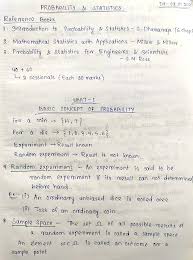 PROBABILITY & STATISTICS
Reference Books
1. Introduction to Probability & Statistics - S. Dharmaraja
2. Mathematical Statistics with Applications - Miller & Miller
3. Probability & Statistics for Engineers & Scientists
- S.M Ross
40 + 60
2 sessionals (Each 20 marks)
UNIT-1
BASIC CONCEPT OF PROBABILITY
For a coin → {H, T}
For a dice → {1, 2, 3, 4, 5, 6}
Experiment → Result is known
Random experiment → Result is not known
Random Experiment : An experiment is said to be
random experiment if its result can not determined
before hand.
Ex:- (i) An ordinary unbiased dice is rolled once
(ii) Toss of an ordinary coin.
Sample Space :- The set Ω of all possible results of
a random experiment is called a sample space
An element ω ∈ Ω is called an outcome or a
sample point